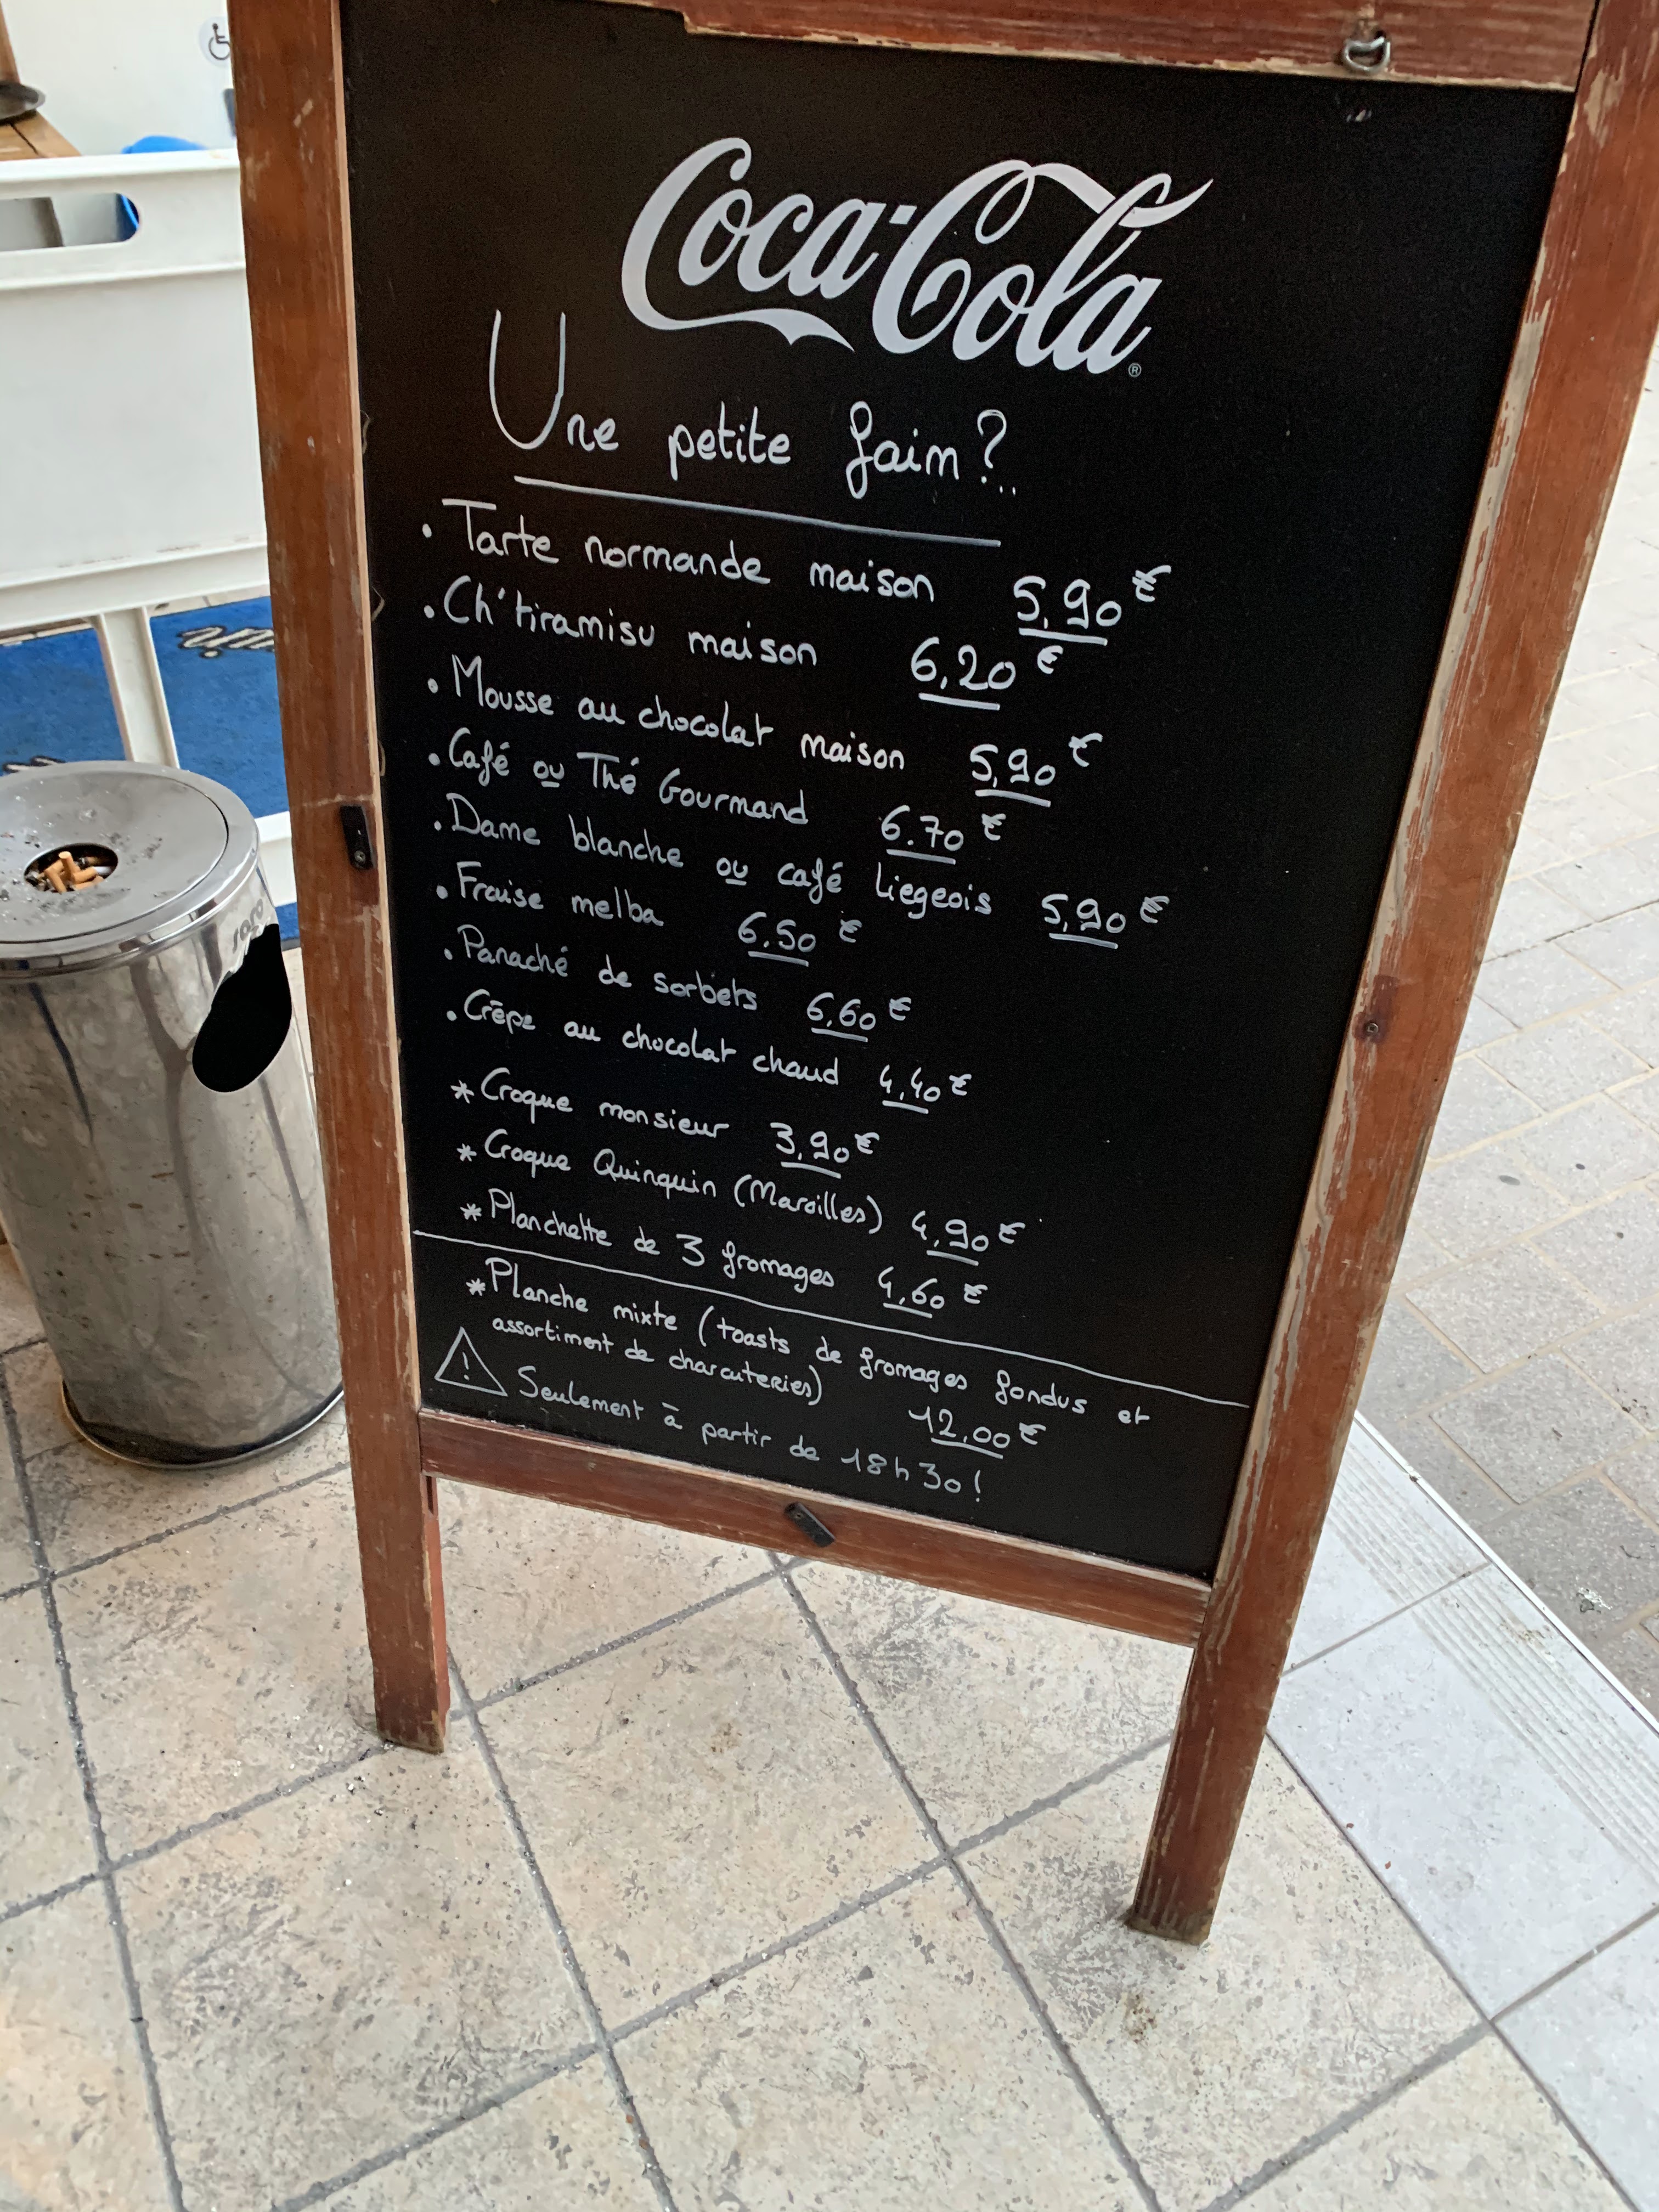 Coca-Cola
Une petite faim?...
. Tarte normande maison 5,90€
. Ch'tiramisu maison 6,20€
. Mousse au chocolat maison 5,90€
. Café ou Thé Gourmand 6.70€
. Dame blanche ou café liegeois 5,90€
. Fraise melba 6,50€
. Panaché de sorbets 6,60€
. Crêpe au chocolat chaud 4,40€
* Croque monsieur 3,90€
* Croque Quinquin (Maroilles) 4,90€
* Planchette de 3 fromages 4,60€
* Planche mixte (toasts de fromages fondus et
assortiment de charcuteries) 12,00€
! Seulement à partir de 18h30!